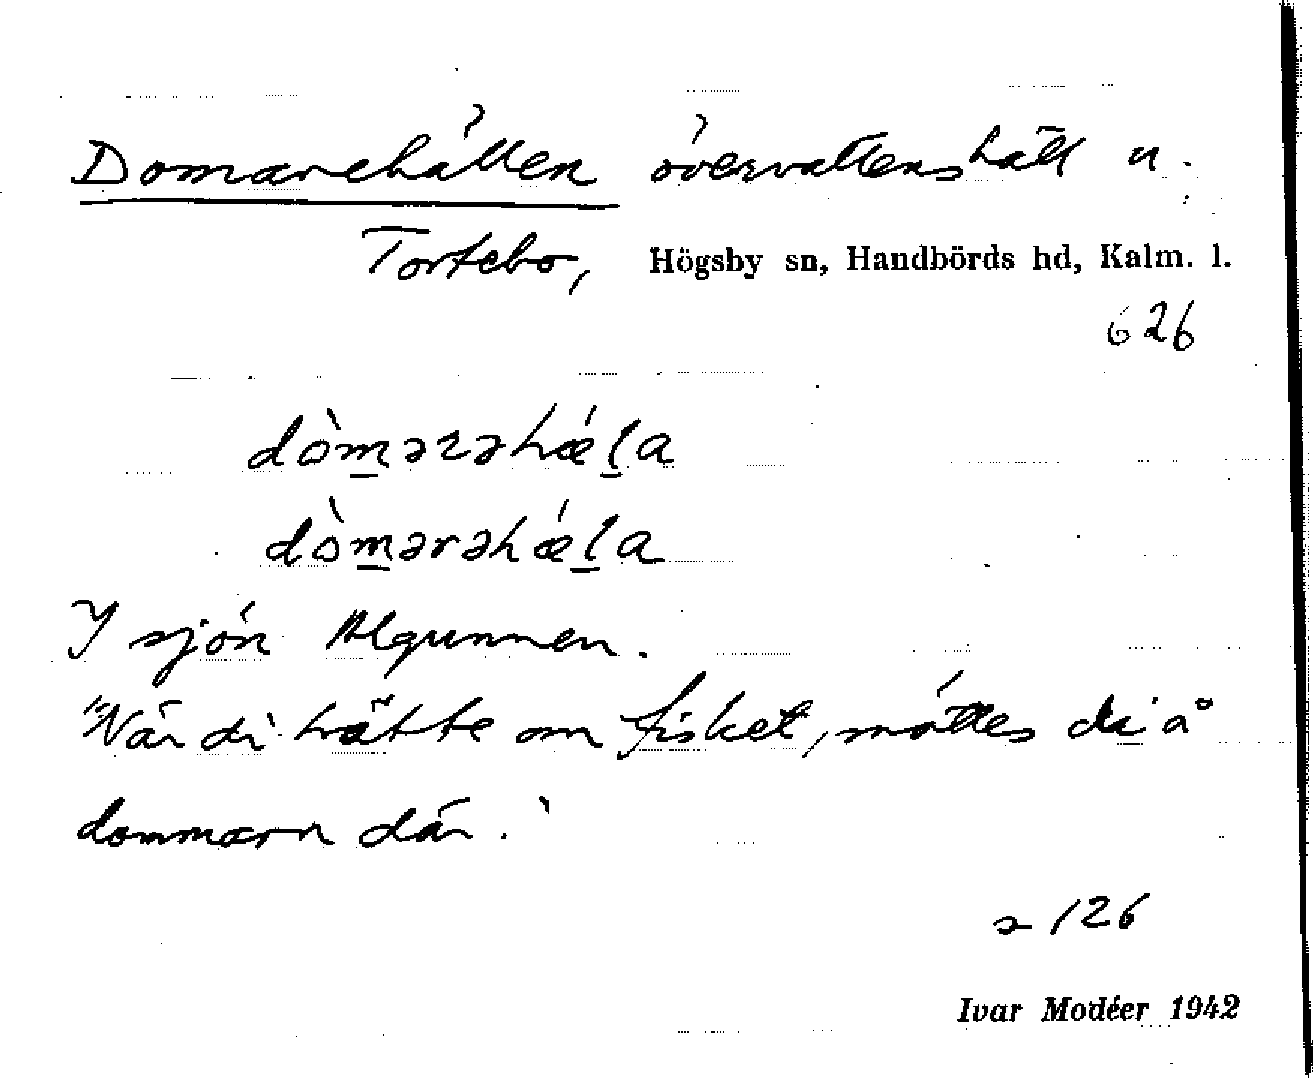 Domarehällen övervattenshäll u.
Tortebo, Högsby sn, Handbörds hd, Kalm. l.
626
dòmərəhǽla
dòmərəhǽla
I sjön Algunnen.
"När di trätte om fisket, möttes di å
dommarn där."
s 126
Ivar Modéer 1942